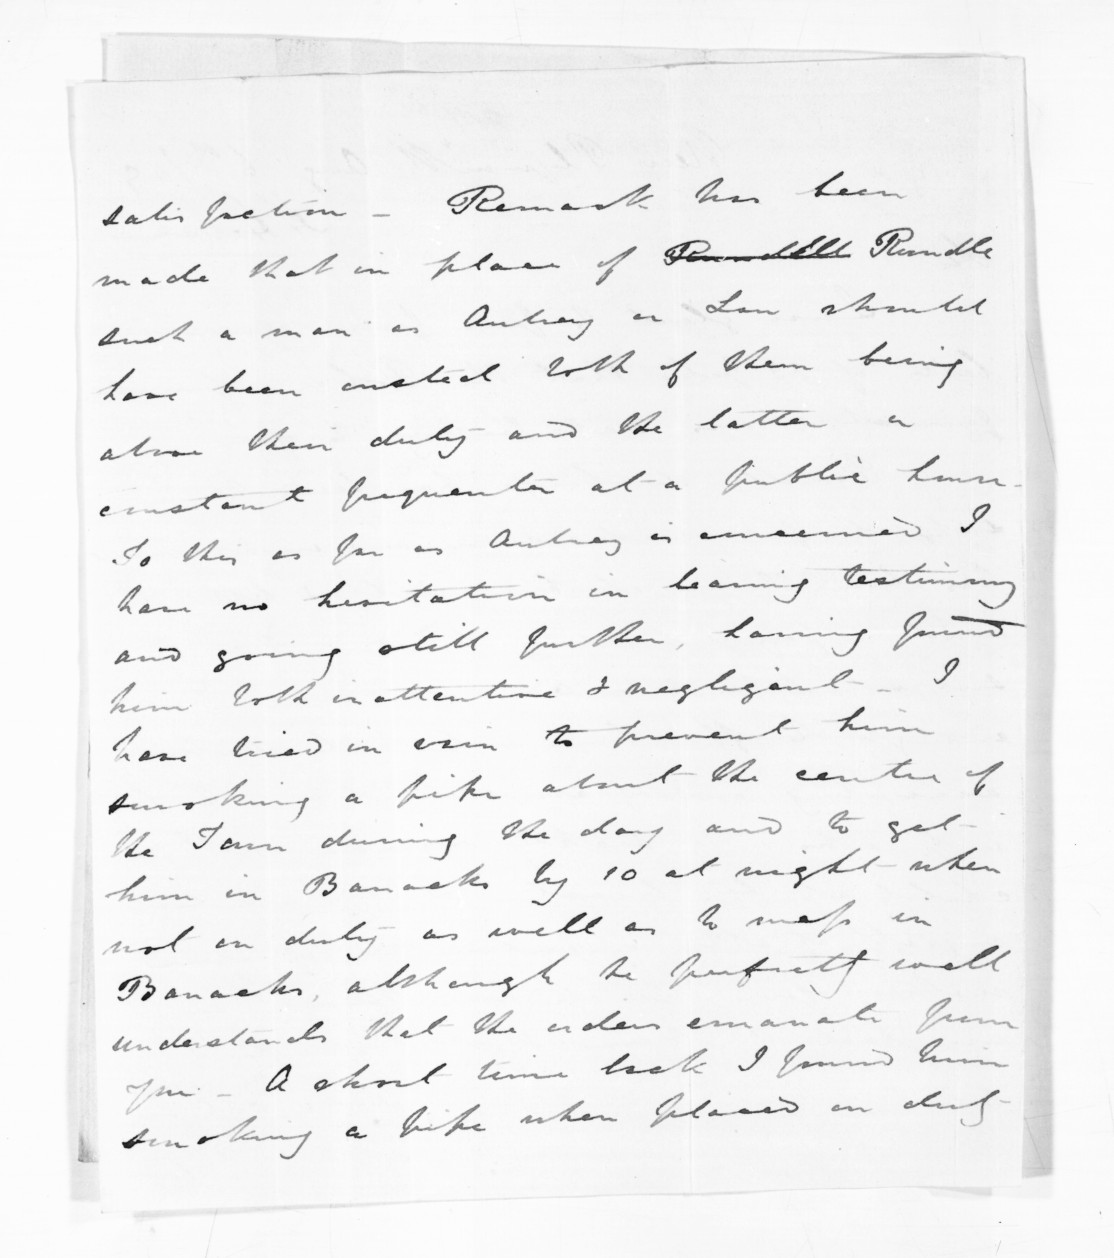 satisfaction - Remark has been
made that in place of Rundell Rundle
such a man as Aubrey or Law should
have been ousted both of them being
above their duty and the latter a
constant frequenter at a public house -
To this as far as Aubrey is concerned I
have no hesitation in bearing testimony
and going still further, having found
him both inattentive & negligent - I
have tried in vain to prevent him
smoking a pipe about the centre of
the Town during the day and to get
him in Barracks by 10 at night when
not on duty as well as to mess in
Barracks, although he perfectly well
understands that the orders emanate from
you - A short time back I found him
smoking a pipe when placed on duty